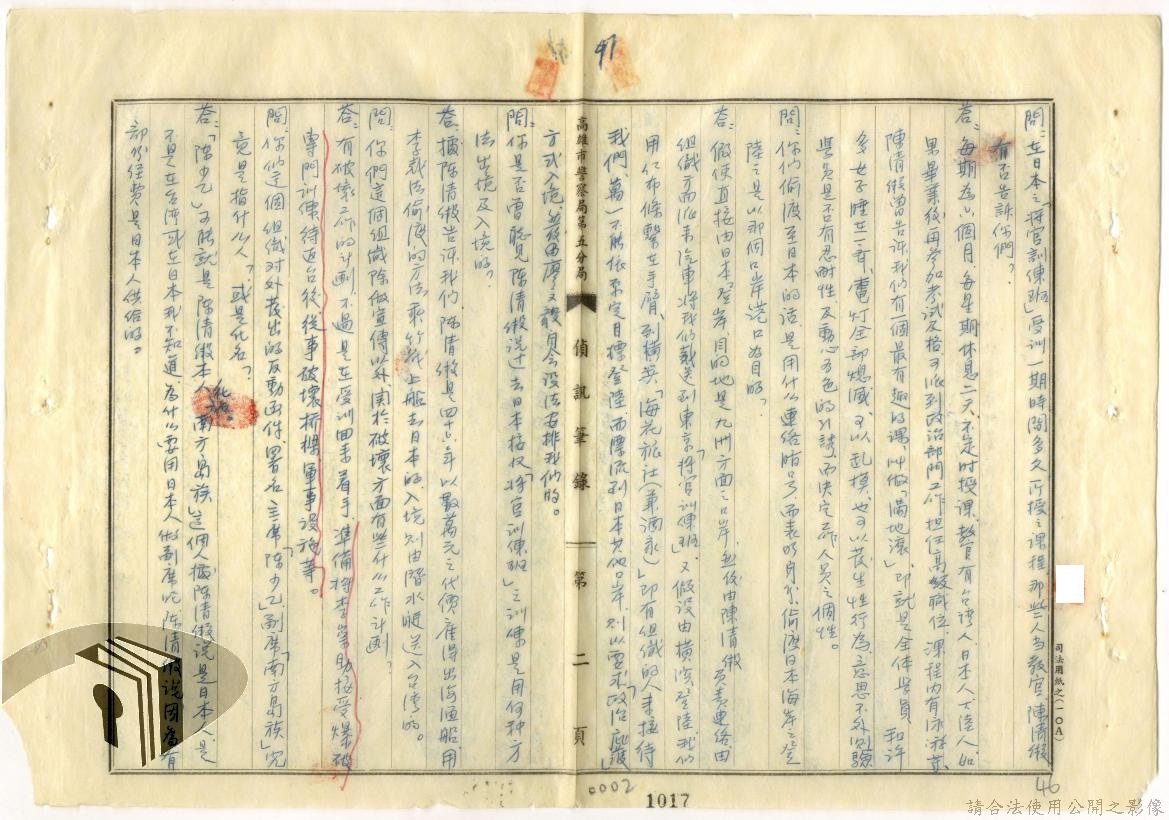 97
問：在日本之「將官訓練班」受訓一期時間多久所授之課程那些人當教官陳清緞
有否告訴你們？
答：每期為六個月、每星期休息二天、不定時授課、教育有台灣人日本人大陸人、如
果畢業後再參加考試及格、可派到政治部門工作担任高級職位、課程內有泳游等、
陳清緞曾告訴我們有一個最有趣的課、叫做「滿地滾」即就是全体學員 和許
多女子睡在一齊、電灯全部熄滅、可以乱摸、也可以發生性行為、意思不外試驗
學員是否有忍耐性及動心可色的 而決定工作人員之個性。
問：你們偷渡至日本的話是用什么連絡暗号而表明身份偷渡日本海岸之登
陸之是以那個口岸港口為目的？
答：假使直接由日本登岸、目的地是九洲方面之口岸、無後由陳清緞負責連絡由
組織方面派來汽車將我們載送到東京「將官訓練班」又假設由橫濱登陸我們
用紅布條繫在手臂、到橫「海花旅社（兼酒家）」即有組織的人來接待
我們、萬一不能依原定目標登陸而漂流到日本其他口岸、則以要求「政治庇護」
方式入境、並後由廖文毅自会設法安排我們的。
高雄市警察局第五分局
偵訊筆錄
第二頁
問：你是否曾聽見陳清緞說过去日本接收「將官訓練班」之訓練是用何種方
法出境及入境的？
答：據陳清緞告訴我們、陳清緞是四十六年以數萬元之代價雇得出海漁船用
李裁法偷渡的方法乘竹筏上船去日本的、入境則由潛水艇送入台灣的。
問：你們這個組織除做宣傳以外、関於破壞方面有些什么工作計劃？
答：有破壞工作的計劃、不過是在受訓回來着手、準備將李榮助接受爆破
專門訓練待返台後從事破壞桥樑軍事設施等。
問：你們這個組織对外發出的反動函件、署名主席「陳少乙」副席「南方島族」究
竟是指什么人？或是化名？
答：「陳少乙」可能就是陳清緞本人化名「南方島族」這個人據陳清緞說是日本人、是
不是在台灣或在日本我不知道、為什么要用日本人做副席呢、陳清緞說因為有
部份经費是日本人供給的。
司法用紙之(一〇A)
46
0002
1017
請合法使用公開之影像